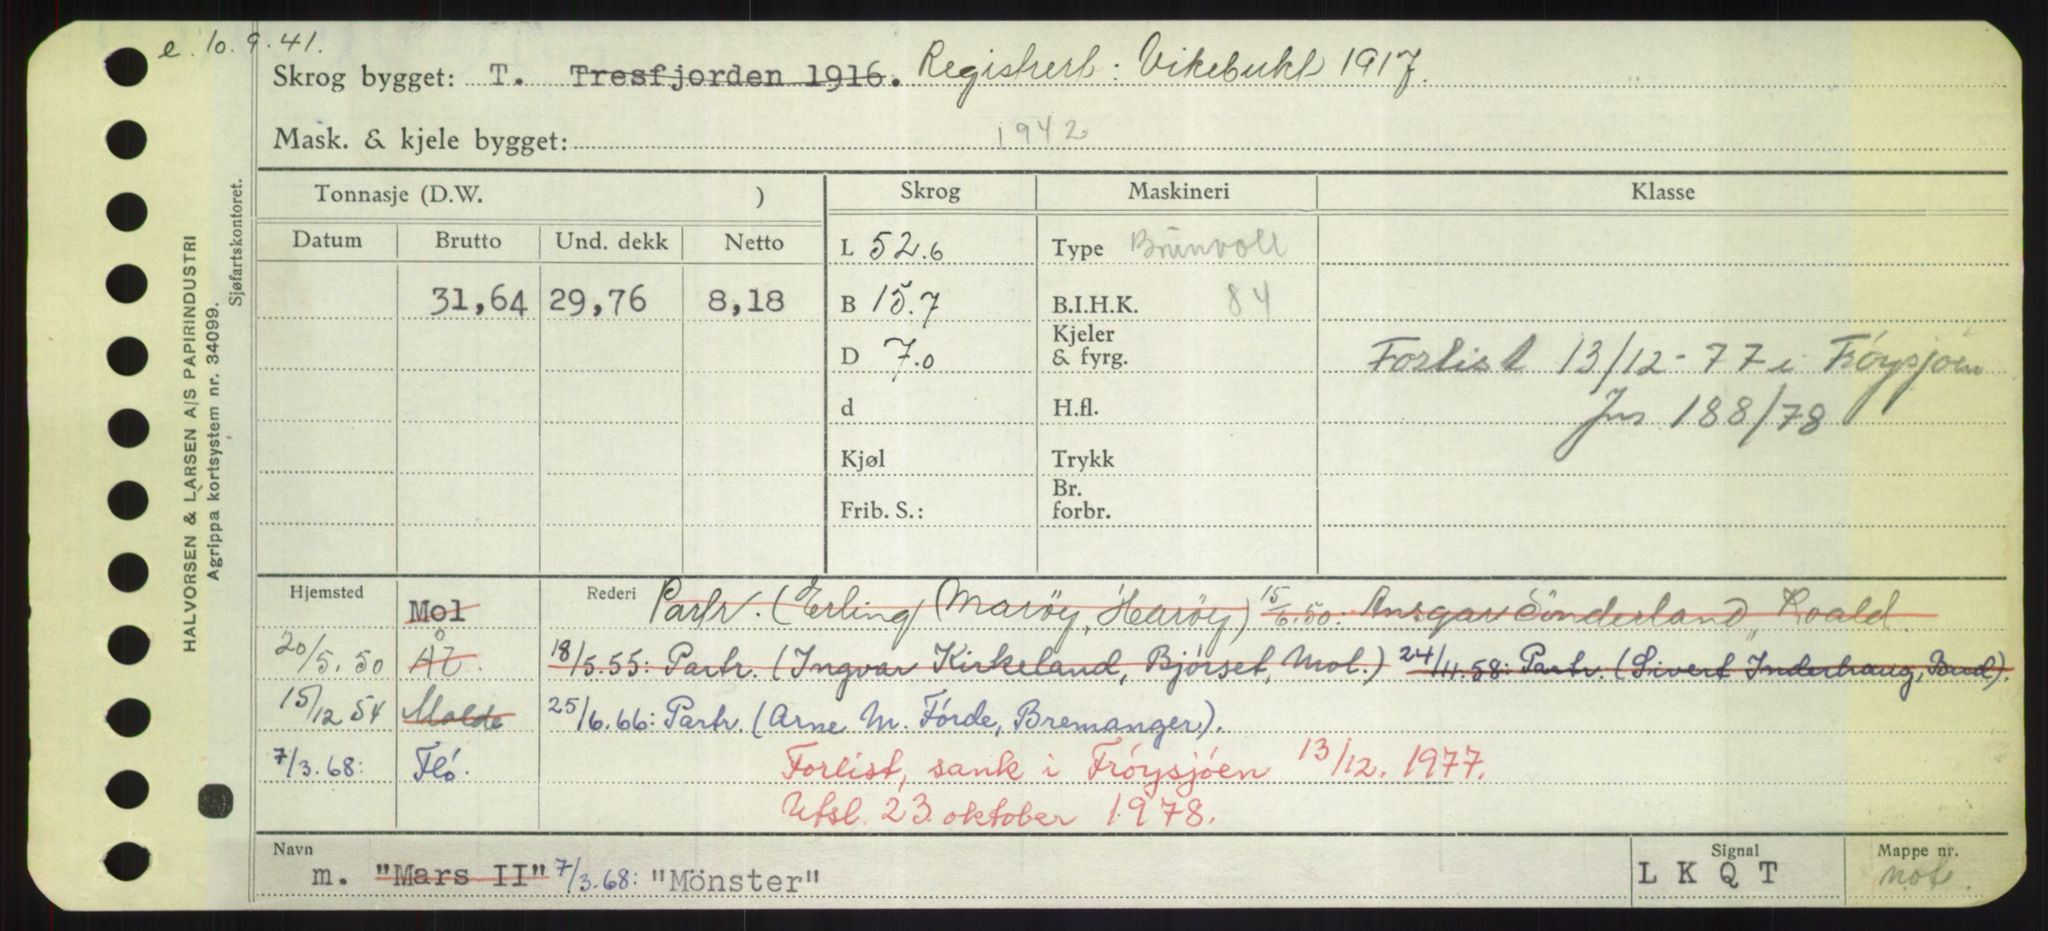 e. 10.9.41.
Skrog bygget: T. Tresfjorden 1916. Registrert: Vikebukt 1917.
Mask. & kjele bygget: 1942
Tonnasje (D.W. )
Skrog
Maskineri
Klasse
Datum Brutto Und. dekk Netto
31,64 29,76 8,18
L 52.6
B 15.7
D 7.0
d
Kjøl
Frib. S.:
Type Brunvoll
B.I.H.K. 84
Kjeler
& fyrg.
H.fl.
Trykk
Br.
forbr.
Forlist 13/12-77 i Frøysjøen
Jns 188/78
Hjemsted Mol Rederi Partr. (Erling Marøy, Harøy) 15/6.50: Ansgar Sønderland, Roald.
20/5.50 Ål. 18/5.55: Partr. (Ingvar Kirkeland, Bjørset, Mol.) 24/11.58: Partr. (Sivert Inderhaug, Bud).
15/12 54 Molde 25/6.66: Partr. (Arne M. Førde, Bremanger).
7/3.68: Flø. Forlist, sank i Frøysjøen 13/12. 1977.
Utsl. 23. oktober 1978.
Navn m. "Mars II" 7/3.68: "Mönster"
Signal
L K Q T
Mappe nr.
mot.
HALVORSEN & LARSEN A/S PAPIRINDUSTRI
Agrippa kortsystem nr. 34099.
Sjøfartskontoret.